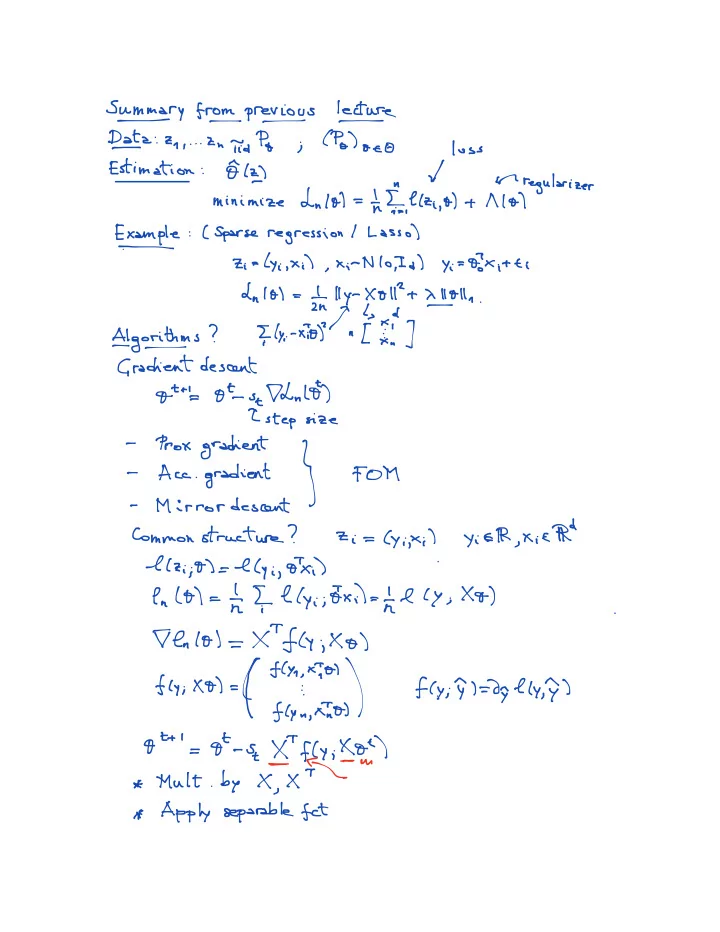 Summary from previous lecture
Data: z₁,... zₙ ~iid P_θ ; (P_θ)_{θ∈Θ}
loss
Estimation: θ̂(z)
regularizer
minimize ℒₙ(θ) = 1/n Σ_{i=1}^n ℓ(zᵢ,θ) + Λ(θ)
Example: (Sparse regression / Lasso)
zᵢ = (yᵢ, xᵢ) , xᵢ ~ N(0, I_d) yᵢ = θ₀ᵀxᵢ + εᵢ
ℒₙ(θ) = 1/2n ‖y - Xθ‖² + λ‖θ‖₁.
Algorithms? Σᵢ(yᵢ - xᵢᵀθ)² n [ x₁ ⋮ xₙ ] d
Gradient descent
θ^{t+1} = θ^t - s_t ∇ℒₙ(θ^t)
↑ step size
- Prox gradient
- Acc. gradient } FOM
- Mirror descent
Common structure? zᵢ = (yᵢ, xᵢ) yᵢ ∈ ℝ, xᵢ ∈ ℝ^d
ℓ(zᵢ;θ) = ℓ(yᵢ, θᵀxᵢ)
ℓₙ(θ) = 1/n Σᵢ ℓ(yᵢ; θᵀxᵢ) = 1/n ℓ(y, Xθ)
∇ℓₙ(θ) = Xᵀf(y; Xθ)
f(y; Xθ) = ( f(y₁, x₁ᵀθ) ⋮ f(yₙ, xₙᵀθ) ) f(y; ŷ) = ∂_ŷ ℓ(y, ŷ)
θ^{t+1} = θ^t - s_t Xᵀf(y; Xθ^t)
* Mult. by X, Xᵀ
* Apply separable fct